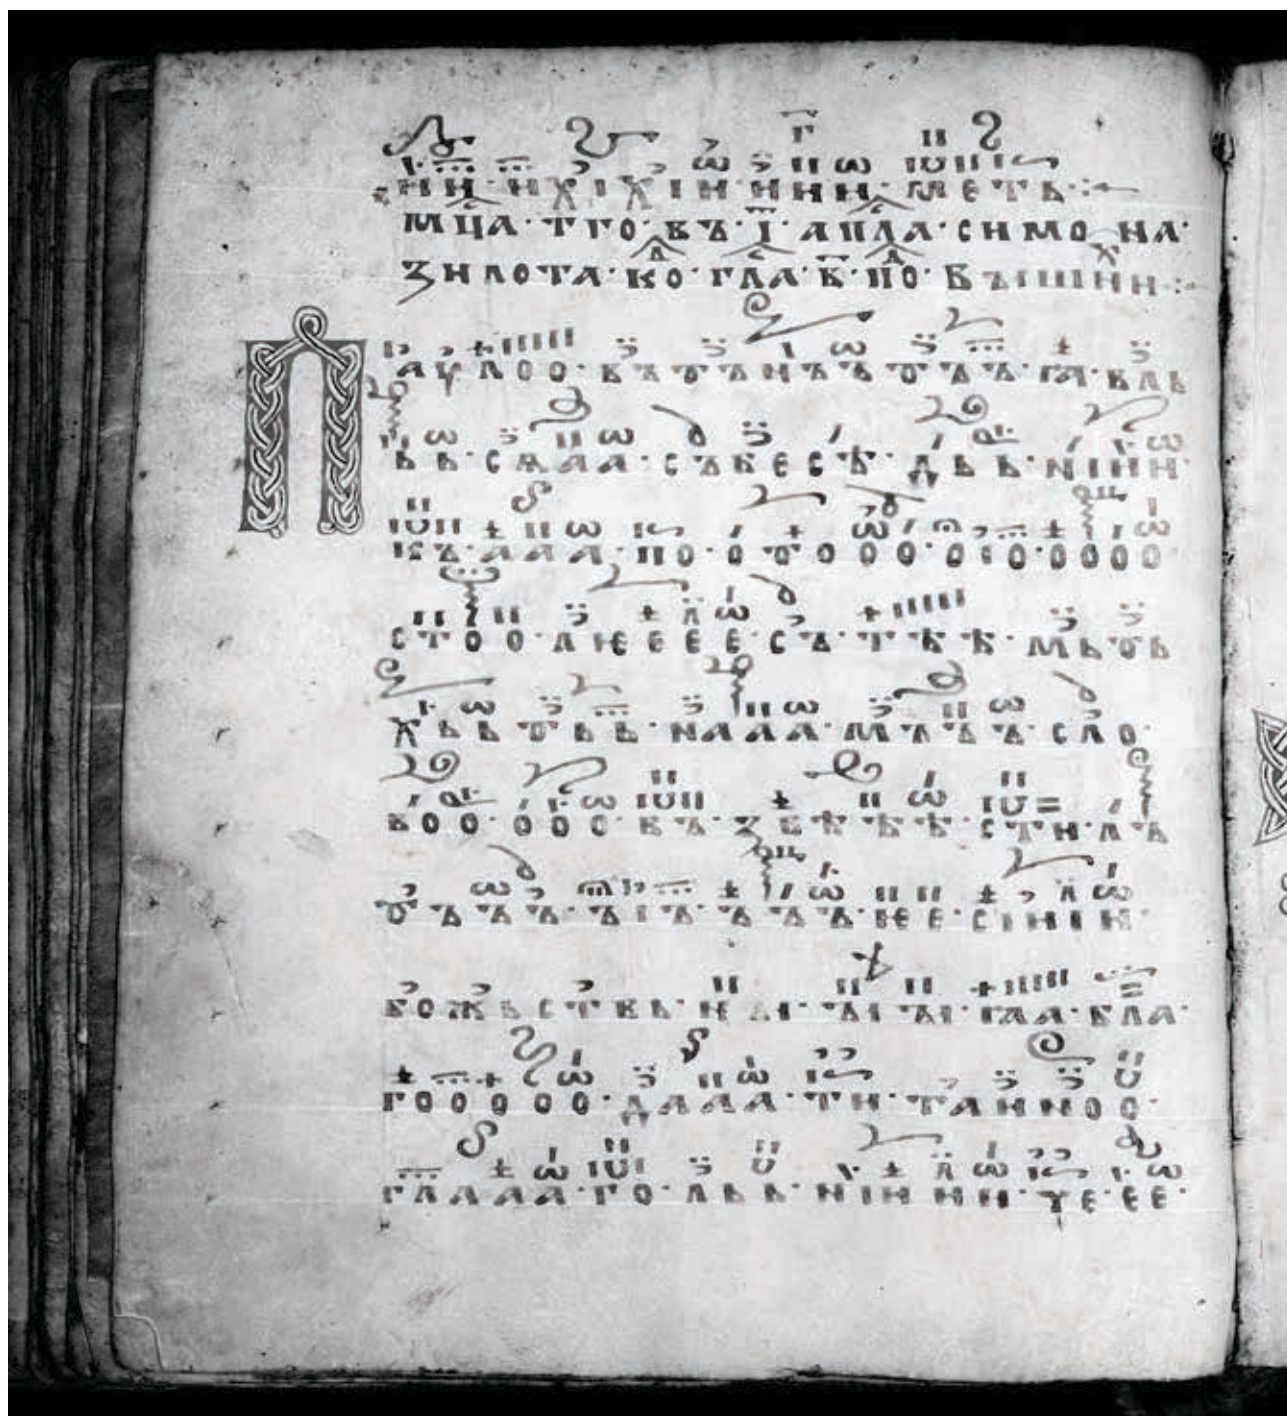 НИ · НХІХІНИ НИН · МЕТЬ ·:
МЦА · ТГО · ВЪ · І · АПЛА · СИМОНА ·
ЗИЛОТА · КО · ГЛА · В · ПО · ВЪІШІНИ ·:
ПАУЛОО · ВЪТЪНЪЪТЪЪ · ГАВЛЬ
ЬЬ · СѦАА · СЪВЕСѢ · ДЬЬ · НІНИ ·
КЪ · ААА · ПО · ОТООО · ОІО · ОООО
СТОО · ЛѤЕЕЕ · СЪ · ТѢѢ · МЬТЬ
ХЬЬТЬЬ · НААА · МЪЪЪ · СЛО ·
ВОО · ООО · ВЪ · ЗВѢѢѢ · СТИЛЪ
ТЪЪЪ · ЪІЪ · ЪЪЪ · ѤЕ · СІНІН ·
БОЖЬСТВЬ · НЪІ · ЪІ ЪІ · ГАА · БЛА ·
ГООООО · ДААА · ТИ · ТАИНОО ·
ГЛААА · ГО · ЛЬЬ · НІНИИ · ЧЕЕЕ ·